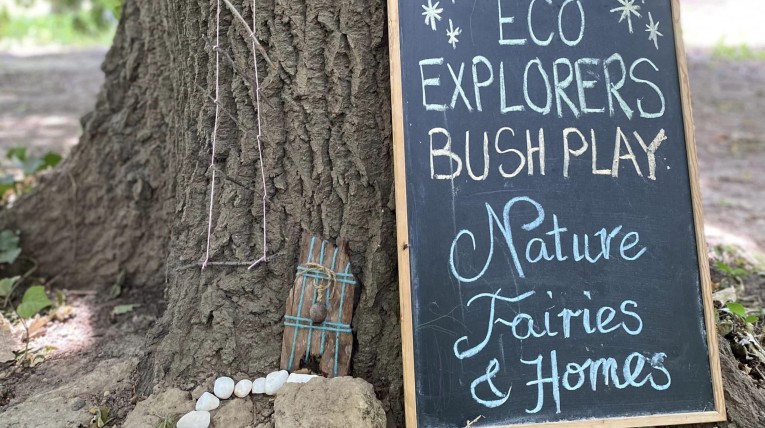 ECO
EXPLORERS
BUSH PLAY
Nature
Fairies
& Homes